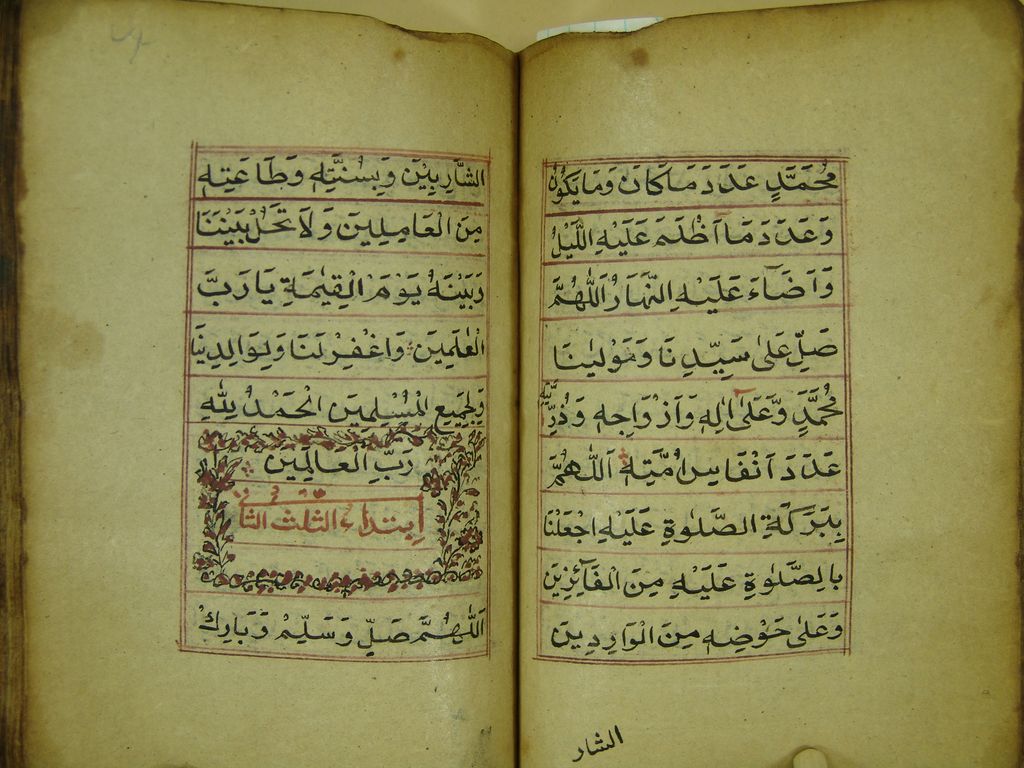 مُحَمَّدٍ عَدَدَ مَا كَانَ وَمَا يَكُونُ
وَعَدَدَ مَا اَظْلَمَ عَلَيْهِ اللَّيْلُ
وَاَضَآءَ عَلَيْهِ النَّهَارُ اَللّٰهُمَّ
صَلِّ عَلٰى سَيِّدِنَا وَمَوْلٰينَا
مُحَمَّدٍ وَّعَلٰى اٰلِهٖ وَاَزْوَاجِهٖ وَذُرِّيَّتِهٖ
عَدَدَ اَنْفَاسِ اُمَّتِهٖ اَللّٰهُمَّ
بِبَرَكَةِ الصَّلٰوةِ عَلَيْهِ اجْعَلْنَا
بِالصَّلٰوةِ عَلَيْهِ مِنَ الْفَآئِزِيْنَ
وَعَلٰى حَوْضِهٖ مِنَ الْوَارِدِيْنَ
الشار
الشَّارِبِيْنَ وَبِسُنَّتِهٖ وَطَاعَتِهٖ
مِنَ الْعَامِلِيْنَ وَلَا تَحُلْ بَيْنَنَا
وَبَيْنَهُ يَوْمَ الْقِيٰمَةِ يَا رَبَّ
الْعٰلَمِيْنَ وَاغْفِرْ لَنَا وَلِوَالِدِيْنَا
وَلِجَمِيْعِ الْمُسْلِمِيْنَ اَلْحَمْدُ لِلّٰهِ
رَبِّ الْعَالَمِيْنَ
اِبتداء الثلث الثانى
اَللّٰهُمَّ صَلِّ وَسَلِّمْ وَبَارِكْ